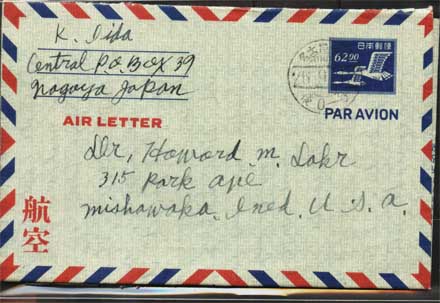 K. Iida
Central P.O. Box 39
Nagoya Japan
日本郵便
6200
PAR AVION
AIR LETTER
Dr, Howard m. Lohr
315 Park ave
Mishawaka. Ined. U. S. A.
航空